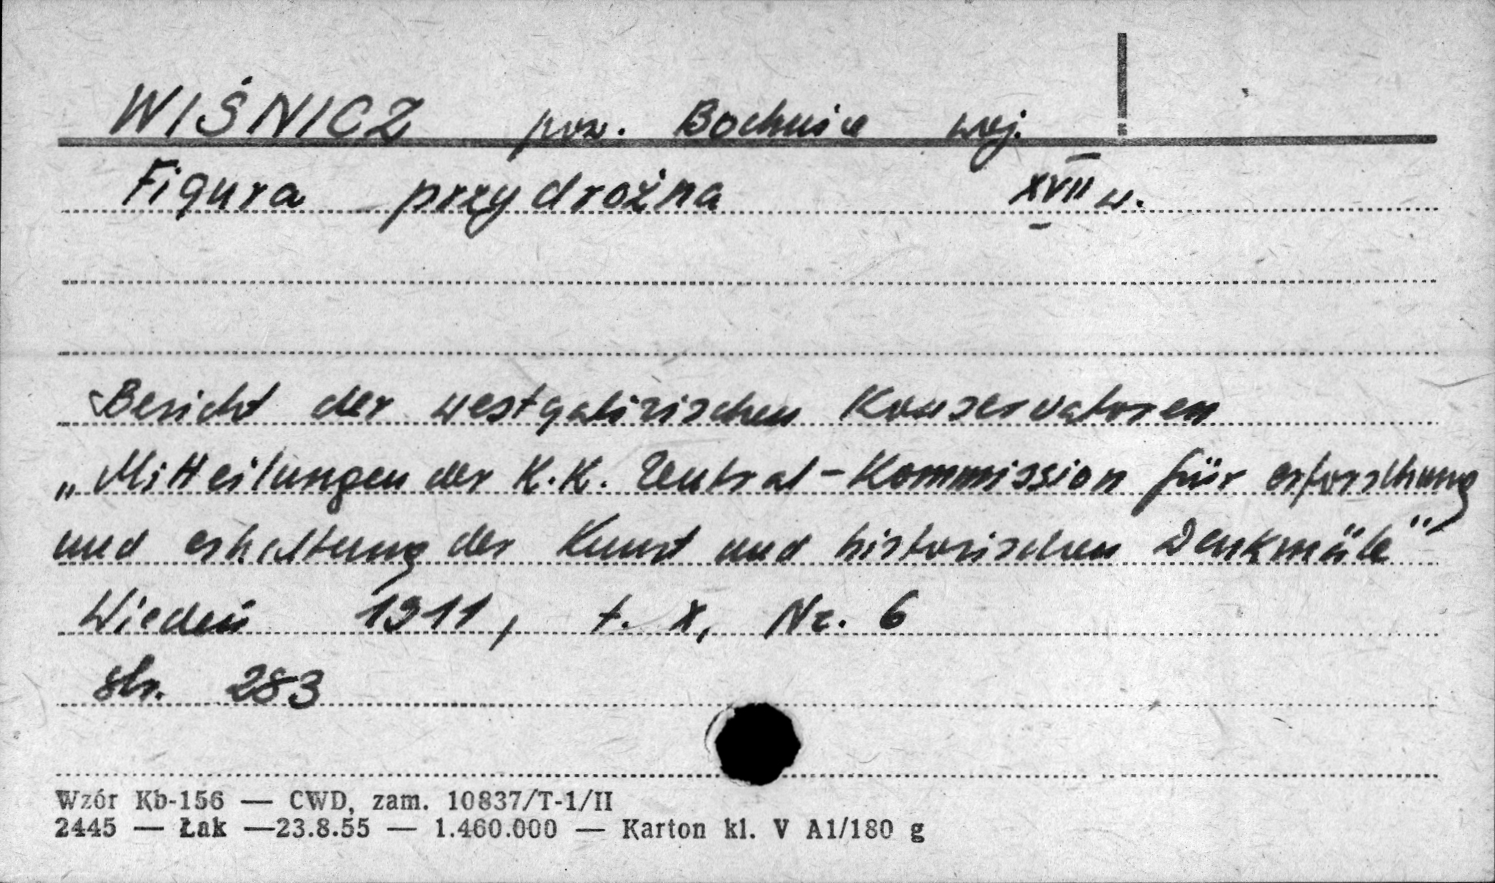 WIŚNICZ pow. Bochnia woj.
Figura przydrożna XVII w.
Bericht der westgalizischen Konservatoren
„Mitteilungen der K.K. Zentral-Kommission für erforschung
und erhaltung der Kunst und historischen Denkmäle"
Wiedeń 1911, t. X, Nr. 6
str. 283
Wzór Kb-156 — CWD, zam. 10837/T-1/II
2445 — Łak —23.8.55 — 1.460.000 — Karton kl. V A1/180 g